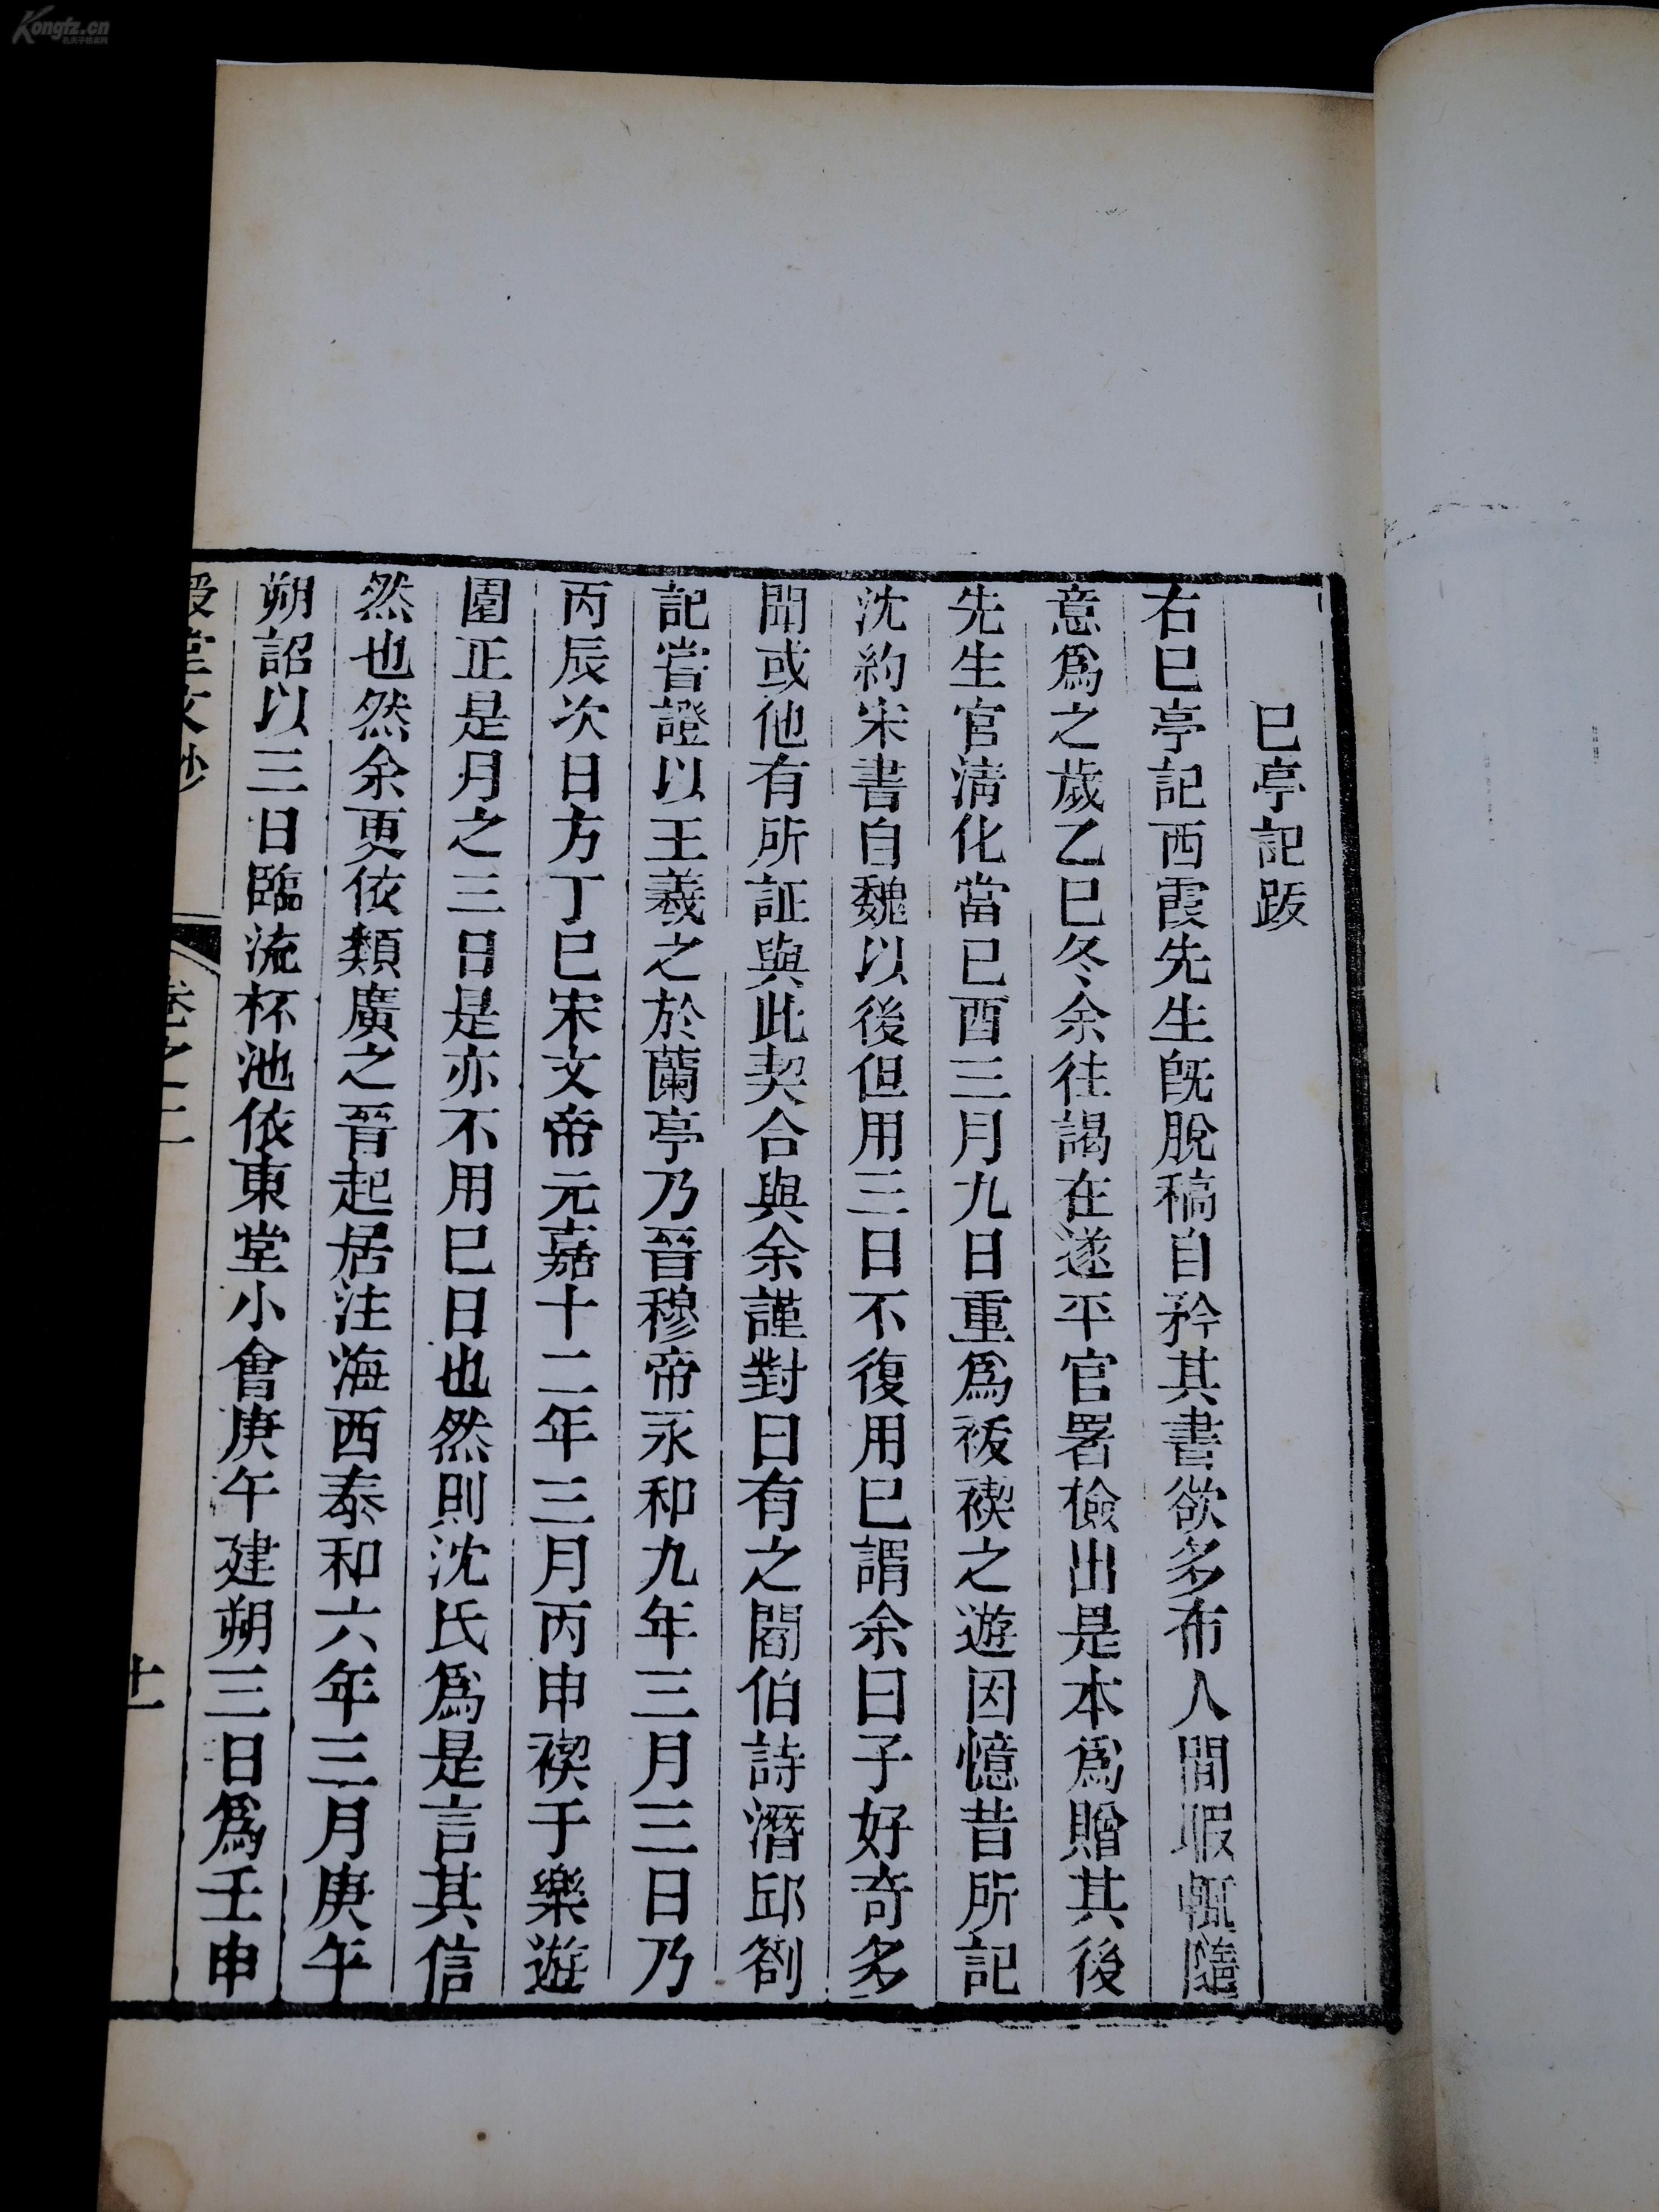 巳亭記跋
右巳亭記西霞先生旣脫稿自矜其書欲多布人間暇輒隨
意爲之歲乙巳冬余往謁在遂平官署檢出是本爲贈其後
先生官淸化當巳酉三月九日重爲祓禊之遊因憶昔所記
沈約宋書自魏以後但用三日不復用巳謂余曰子好奇多
聞或他有所証與此契合與余謹對曰有之閻伯詩潛邱劄
記嘗證以王羲之於蘭亭乃晉穆帝永和九年三月三日乃
丙辰次日方丁巳宋文帝元嘉十二年三月丙申禊于樂遊
園正是月之三日是亦不用巳日也然則沈氏爲是言其信
然也然余更依類廣之晉起居注海西泰和六年三月庚午
朔詔以三日臨流杯池依東堂小會庚午建朔三日爲壬申
授堂文鈔
卷之二
十一
Kongfz.cn
孔夫子旧书网